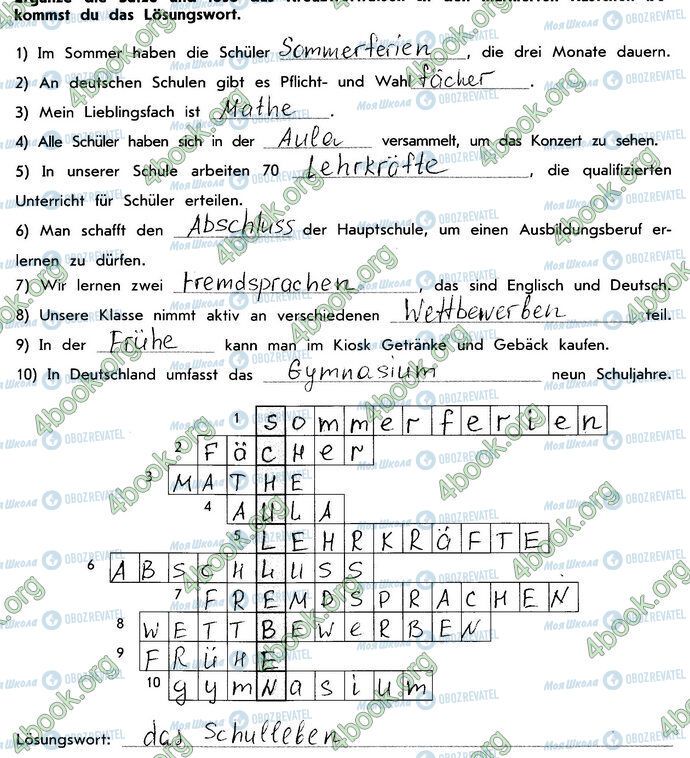 kommst du das Lösungswort.
1) Im Sommer haben die Schüler Sommerferien, die drei Monate dauern.
2) An deutschen Schulen gibt es Pflicht- und Wahlfächer.
3) Mein Lieblingsfach ist Mathe.
4) Alle Schüler haben sich in der Aula versammelt, um das Konzert zu sehen.
5) In unserer Schule arbeiten 70 Lehrkräfte, die qualifizierten
Unterricht für Schüler erteilen.
6) Man schafft den Abschluss der Hauptschule, um einen Ausbildungsberuf er-
lernen zu dürfen.
7) Wir lernen zwei Fremdsprachen, das sind Englisch und Deutsch.
8) Unsere Klasse nimmt aktiv an verschiedenen Wettbewerben teil.
9) In der Frühe kann man im Kiosk Getränke und Gebäck kaufen.
10) In Deutschland umfasst das Gymnasium neun Schuljahre.
1 Sommerferien
2 FäCHer
3 MATHE
4 AULA
5 LEHRKRäFTE
6 ABSCHLUSS
7 FREMDSPRACHEN
8 WETTBEWERBEN
9 FRüHE
10 gymNasium
Lösungswort: das Schulleben